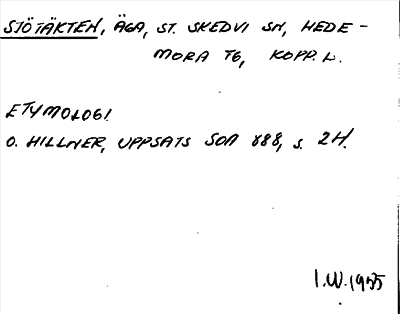 SJÖTÄKTEN, ÄGA, ST. SKEDVI SN, HEDE-
MORA TG, KOPP. L.
ETYMOLOGI.
O. HILLNER, UPPSATS SOA 888, s. 24.
I.W. 1955